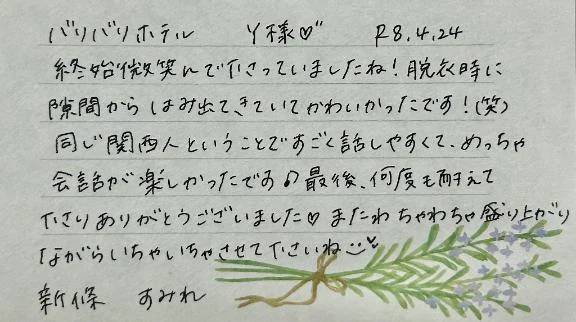 バリバリホテル Y様♡" R8.4.24
終始微笑んで下さっていましたね！脱衣時に
隙間からはみ出てきていてかわいかったです！(笑)
同じ関西人ということですごく話しやすくて、めっちゃ
会話が楽しかったです♪最後、何度も耐えて
下さりありがとうございました♡ またわちゃわちゃ盛り上がり
ながらいちゃいちゃさせて下さいね
新條 すみれ